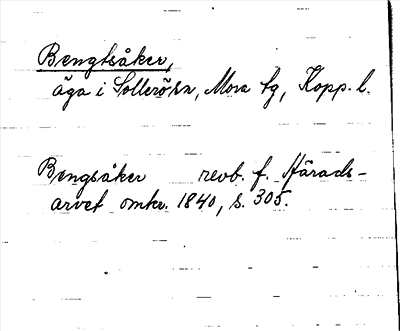 Bengtsåker,
äga i Sollerö sn, Mora tg, Kopp. l.
Bengsåker revb. f. Härads-
arvet omkr. 1840, s. 305.